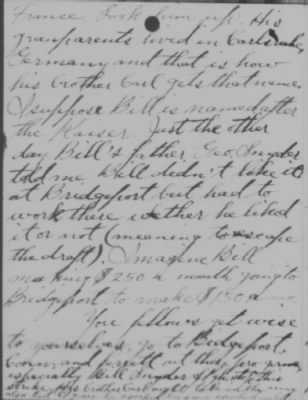 France. Look him up. His
granparents lived in Carlsruhe,
Germany and that is how
his brother Carl gets that name.
I suppose Bill is named after
the Kaiser. Just the other
day Bill's father, Geo. Snyder
told me Bill didn't like it
at Bridgeport but had to
work there wether he liked
it or not (meaning to escape
the draft). Imagine Bill
making $250 a month going to
Bridgeport to make $150 a mo.
You fellows get wise
to yourselves, go to Bridgeport,
Conn, and ferrett out these pro
especially Bill Snyder